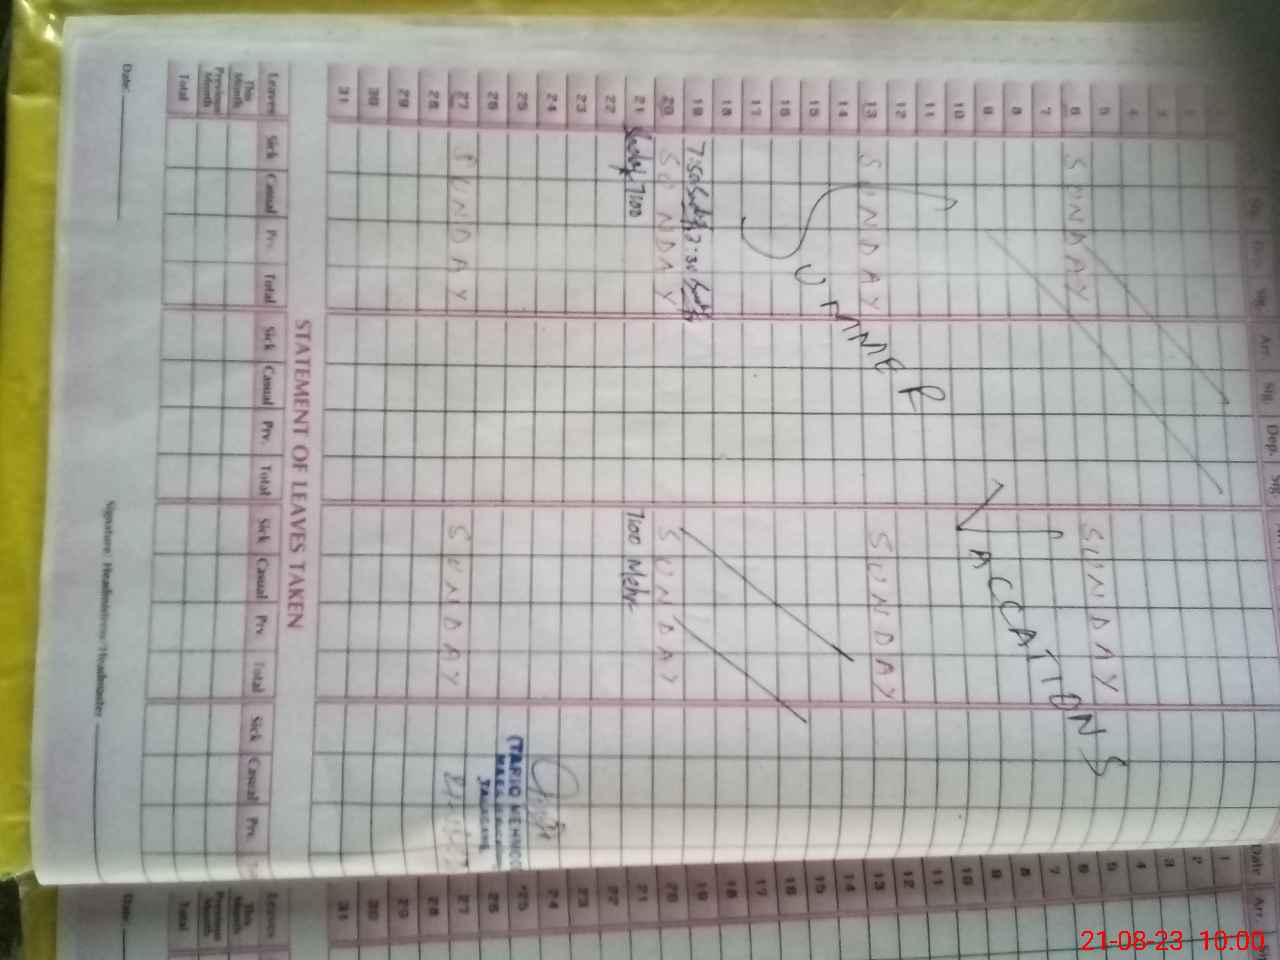 Date Arr. Sig. Dep. Sig. Arr. Sig. Dep. Sig.
1
2
3
4
5
6 SUNDAY SUNDAY
7
8
9
10
11
12
13 SUNDAY SUNDAY
14
15
16
17
18
SUMMER VACCATIONS
19 7:50 7:30
20 SUNDAY SUNDAY
21 7:00 7:00
22
23
24
25
26
27 SUNDAY SUNDAY
28
29
30
31
(TARIQ MEHMOOD
STATEMENT OF LEAVES TAKEN
Leaves Sick Casual Prv. Total Sick Casual Prv. Total Sick Casual Prv. Total Sick Casual Prv.
This Month
Previous Month
Total
Signature: Headmistress/Headmaster
Date:
Date Arr.
1
2
3
4
5
6
7
8
9
10
11
12
13
14
15
16
17
18
19
20
21
22
23
24
25
26
27
28
29
30
31
Leaves
This Month
Previous Month
Total
Date:
21-08-23 10:00